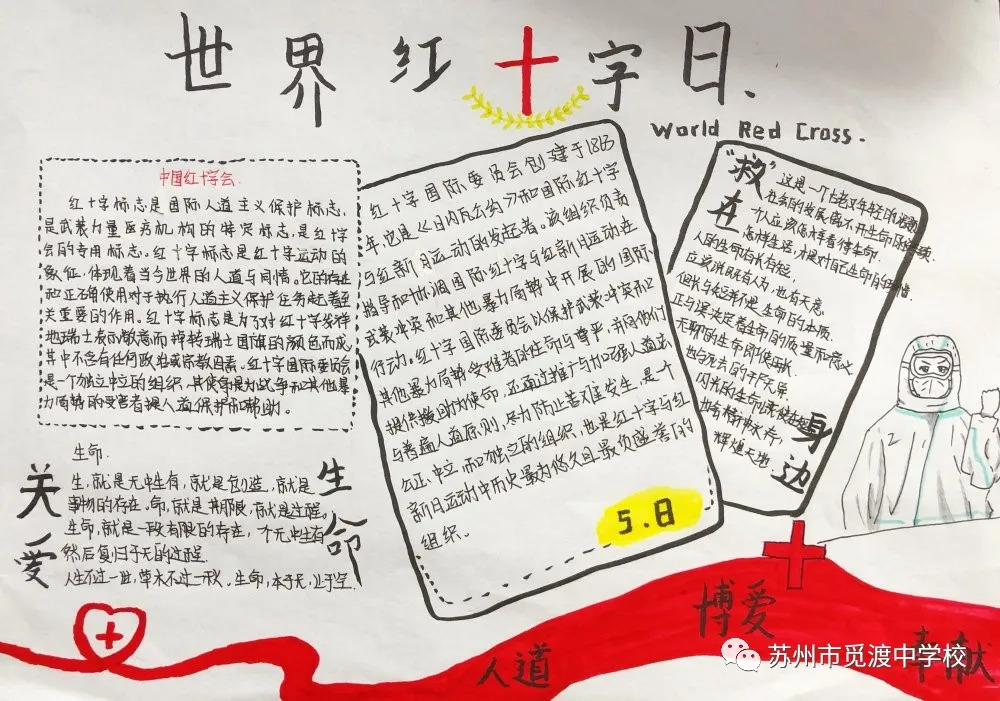 世界红十字日.
World Red Cross.
中国红十字会.
红十字标志是国际人道主义保护标志,
是武装力量医疗机构的特定标志,是红十字
会的专用标志。红十字标志是红十字运动的
象征,体现着当今世界的人道与同情。它的存在
和正确使用对于执行人道主义保护任务起着至
关重要的作用。红十字标志是为了对红十字发祥
地瑞士表示敬意而掉转瑞士国旗的颜色而成
其中不含有任何政治或宗教因素。红十字国际委员会
是一个独立中立的组织,其使命是为战争和其他暴
力局势的受害者提人道保护和帮助。
关爱
生命
生命.
生,就是无中生有,就是创造,就是
事物的存在。命,就是期限,就是过程。
生命,就是一段有限的存在,个无中生有
然后复归于无的过程.
人生不过一世,草木不过一秋。生命,本于无,止于空.
红十字国际委员会创建于1863
年,也是《日内瓦公约》和国际红十字
与红新月运动的发起者。该组织负责
指导和协调国际红十字与红新月运动在
武装冲突和其他暴力局势中开展的国际
行动。红十字国际委员会以保护武装冲突和
其他暴力局势受难者的生命与尊严,并向他们
提供援助为使命,还通过推广与加强人道法
与普遍人道原则,尽力防止苦难发生,是一个
公正、中立和独立的组织,也是红十字与红
新月运动中历史最为悠久且最负盛誉的
组织。
5.8
"救"
在
身
边
这是一个古老又年轻的话题
一个人应该怎样看待生命.
人的生命有长有短,
应该说既有人为,也有天意.
但长与短并不是生命的本质.
正与误决定着生命的质量和意义
无聊的生命即使再长
也与死去的并无异.
也会精神永存,
辉煌天地
人道
博爱
奉献
苏州市觅渡中学校